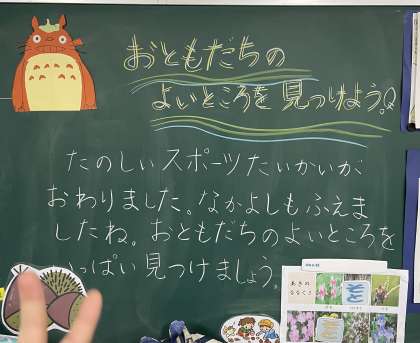 おともだちの
よいところを見つけよう。
たのしいスポーツたいかいが
おわりました。なかよしもふえま
したね。おともだちのよいところを
いっぱい見つけましょう。
あきの
ななくさ